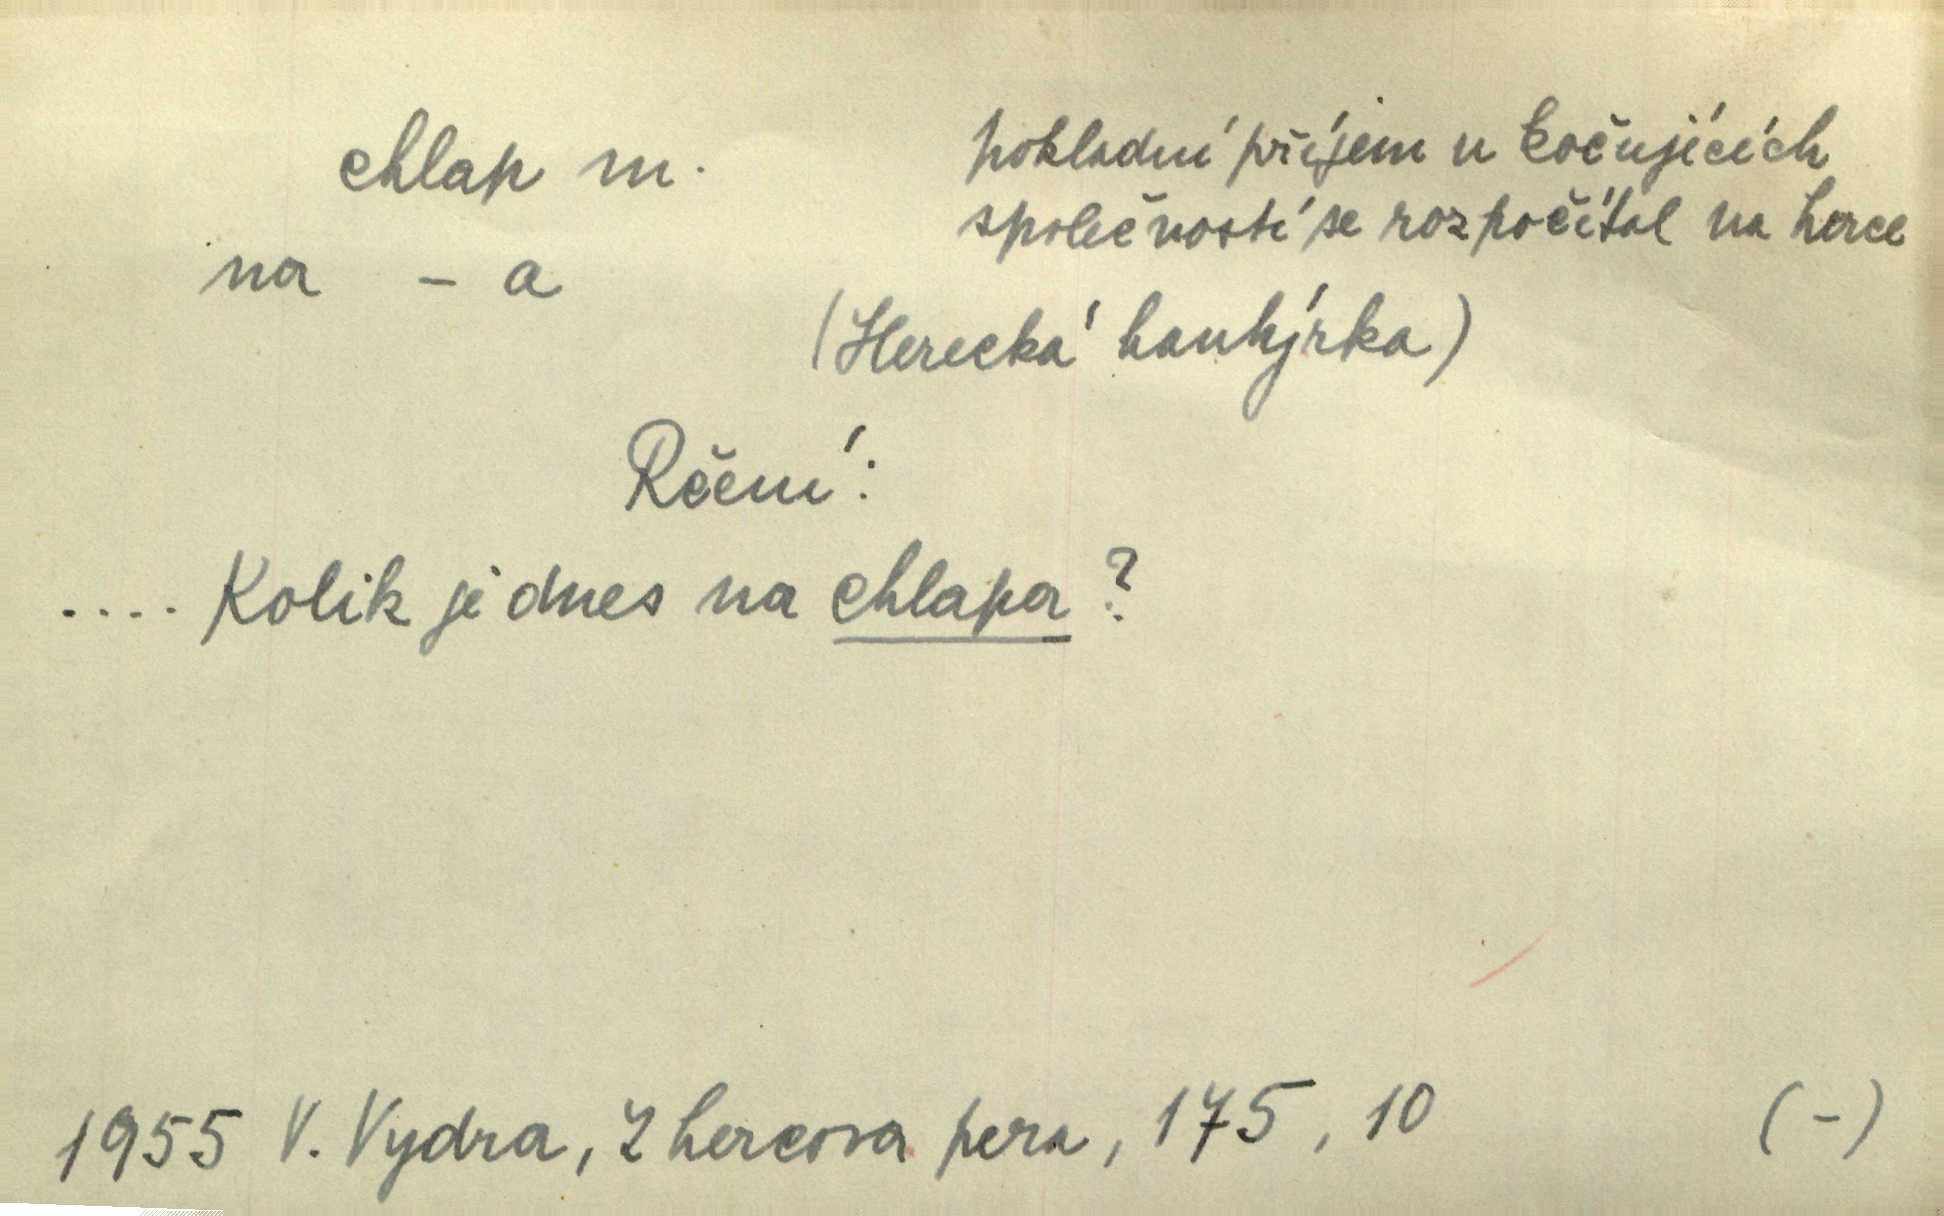 chlap m.
na – a
pokladní příjem u kočujících
společností se rozpočítal na herce
(Herecká hantýrka)
Rčení:
.... Kolik je dnes na chlapa?
1955 V. Vydra, Z hercova pera, 175, 10 (-)